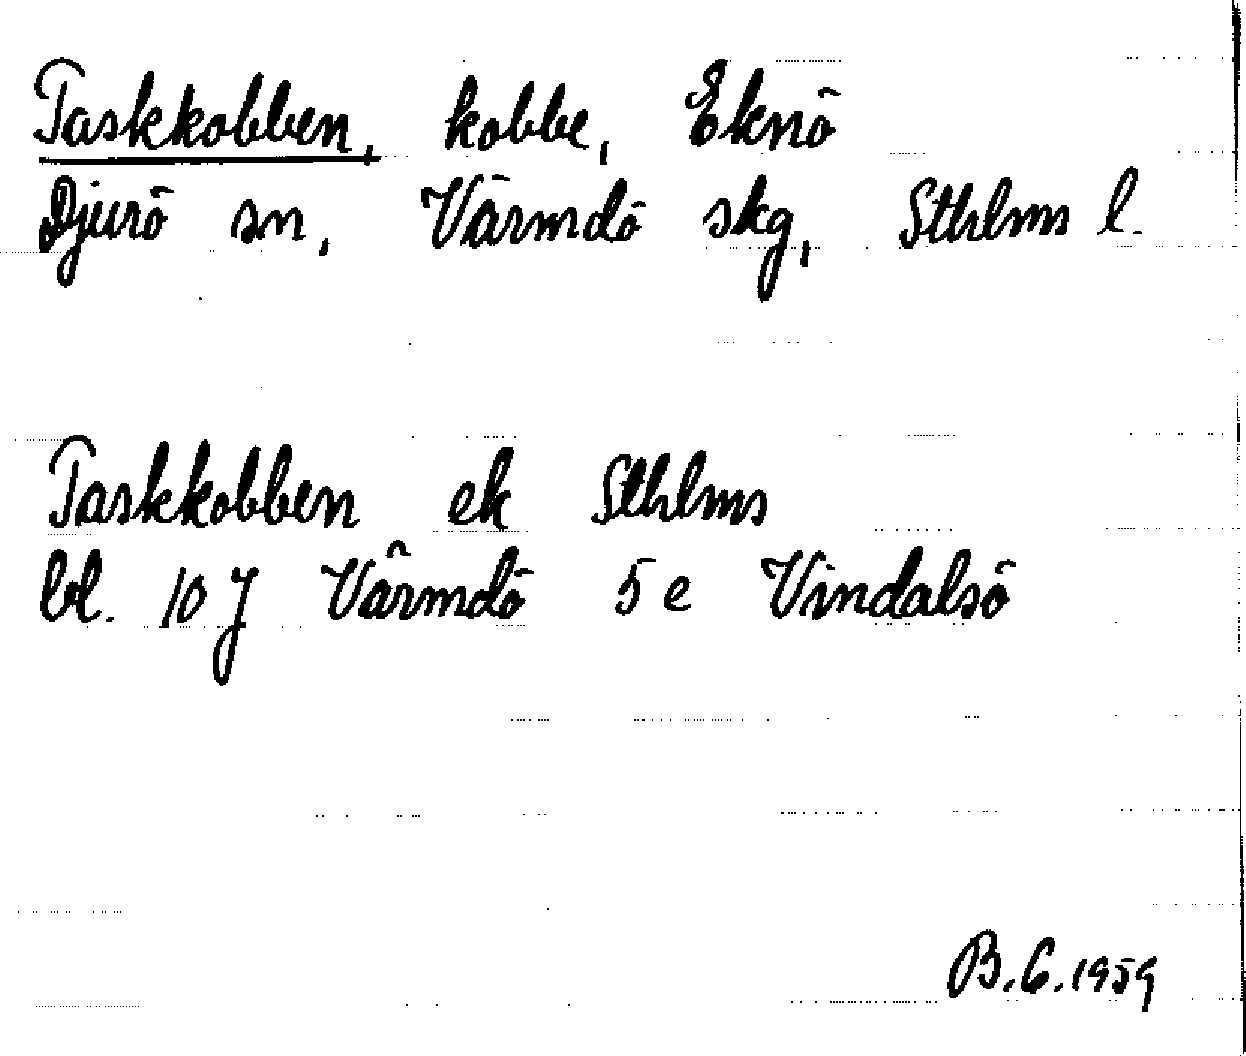 Taskkobben, kobbe, Eknö
Djurö sn, Värmdö skg, Sthlms l.
Taskkobben ek Sthlms
bl. 10 J Värmdö 5 e Vindalsö
B.G. 1959